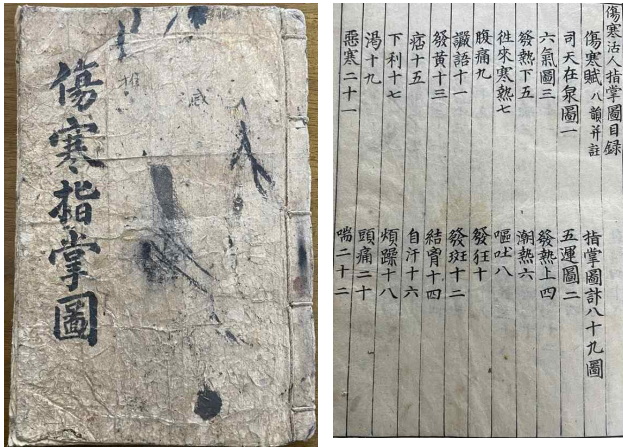 傷寒指掌圖
傷寒活人指掌圖目録
傷寒賦 八韻并註
指掌圖計八十九圖
司天在泉圖一
五運圖二
六氣圖三
發熱上四
發熱下五
潮熱六
徃來寒熱七
嘔吐八
腹痛九
發狂十
讝語十一
發斑十二
發黄十三
結胷十四
痞十五
自汗十六
下利十七
煩躁十八
渴十九
頭痛二十
惡寒二十一
喘二十二